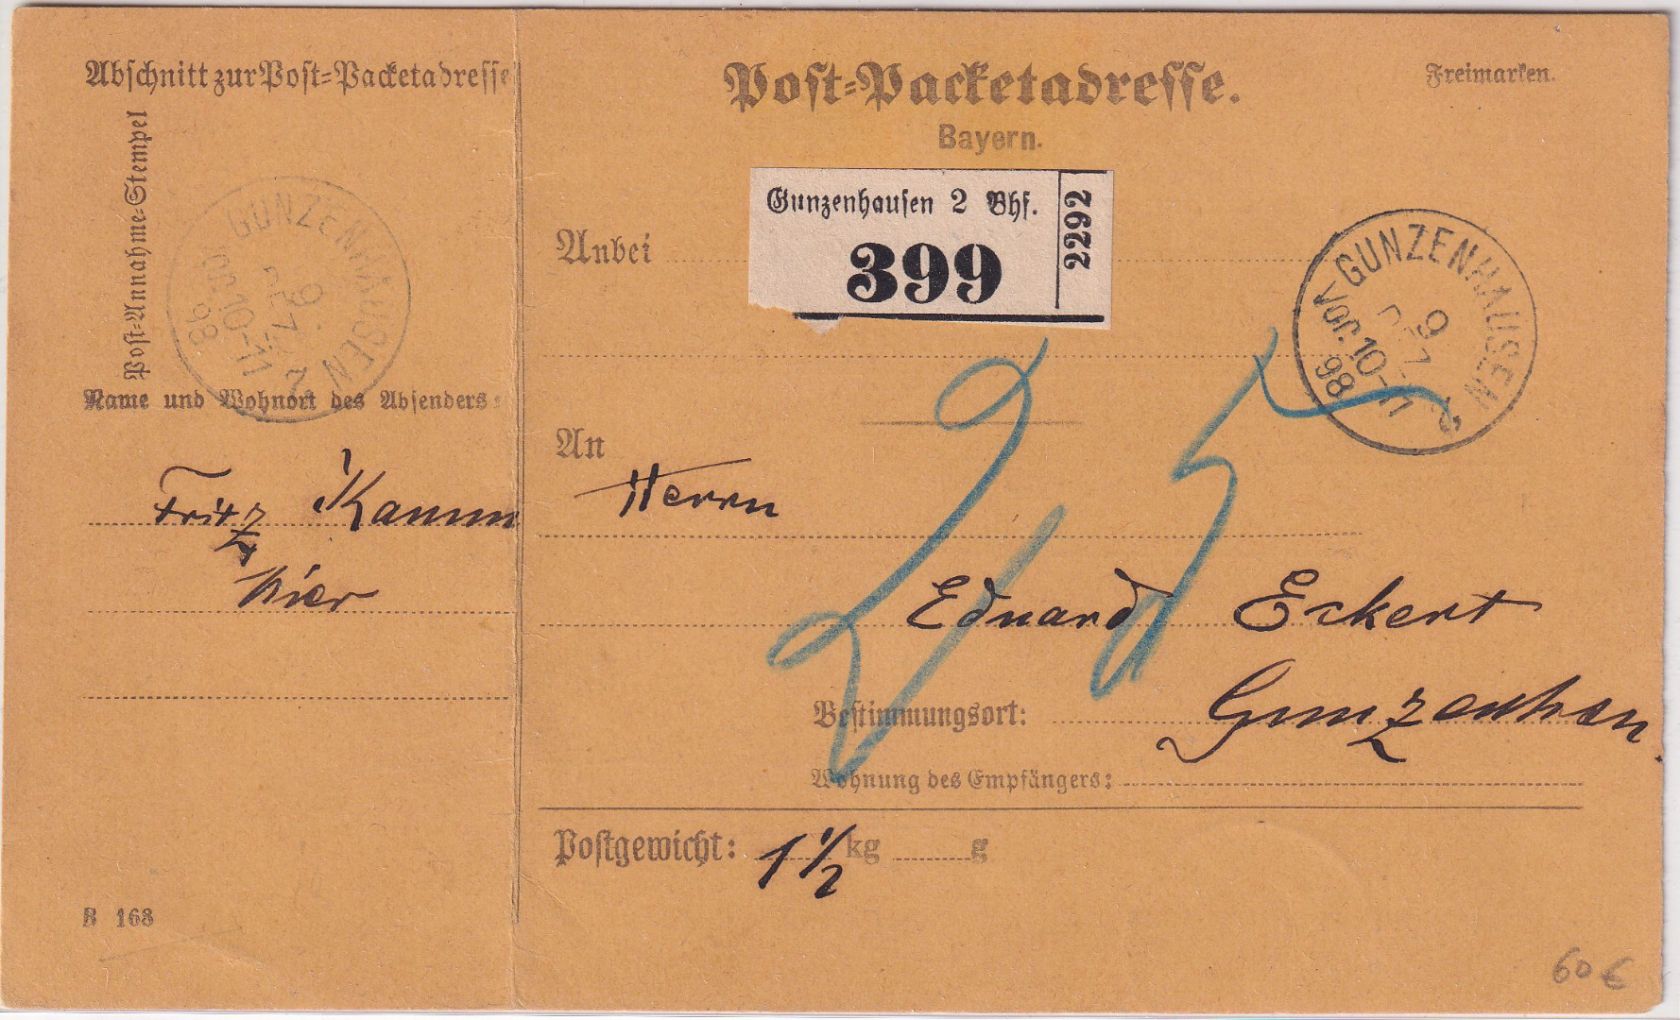 Abschnitt zur Post=Packetadresse
Post=Annahme=Stempel
GUNZENHAUSEN 2
9. DEZ.
Vor. 10-11
98
Name und Wohnort des Absenders:
Fritz Kamm
hier
B 168
Post=Packetadresse.
Bayern.
Freimarken.
Gunzenhausen 2 Bhf.
399
2292
Anbei
GUNZENHAUSEN 2
9
DEZ
Vor. 10-11
98
25
An
Herrn
Eduard Eckert
Bestimmungsort: Gunzenhsn.
Wohnung des Empfängers:
Postgewicht: 1 1/2 kg g
60 €